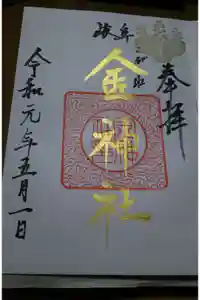 奉拝
岐阜
金神社
令和元年五月一日